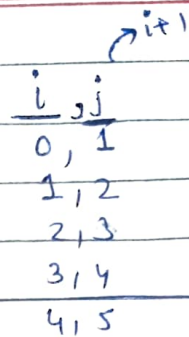 i+1
i, j
0, 1
1, 2
2, 3
3, 4
4, 5